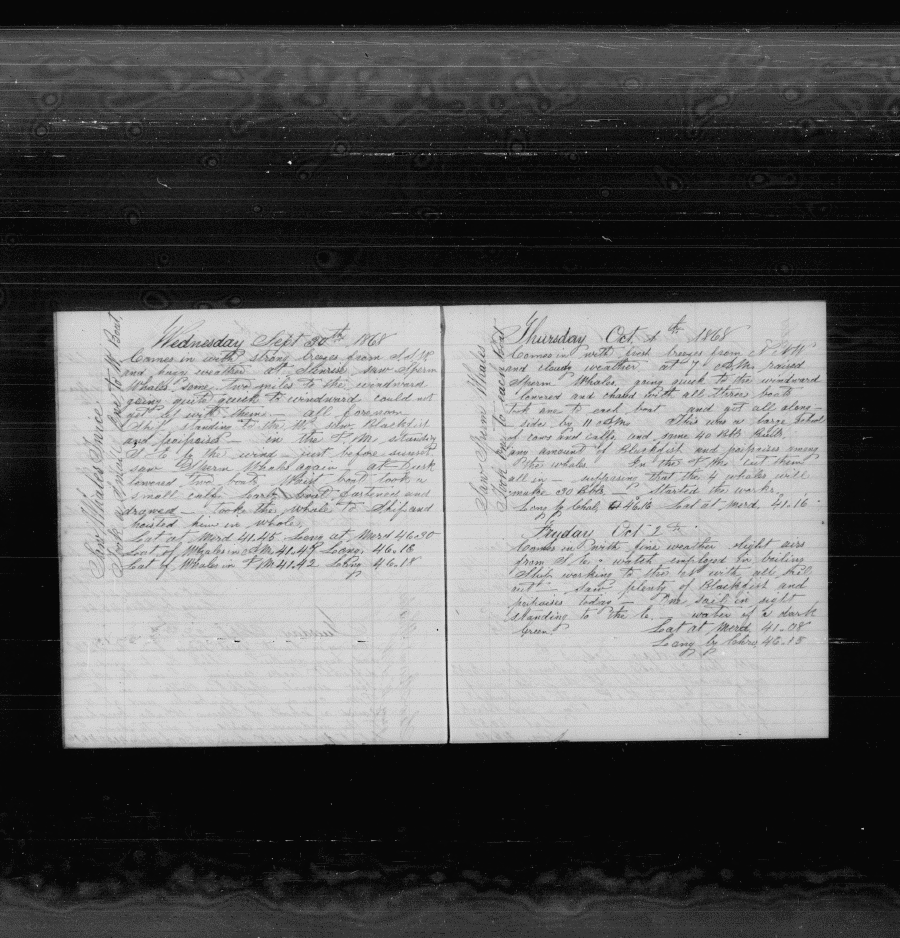 Saw Whales Twice
Took a Small One to the W Boat
Wednesday Sept 30th 1868
Comes in with strong breezes from S.S.W
and hazy weather at Sunrise saw Sperm
Whales some two miles to the windward
going quite quick to windward could not
get up with them — all forenoon
Ship standing to the W. saw Blackfish
and porpoises — in the P.M. standing
S.E. by the wind — just before sunset
saw Sperm Whales again at Dusk
lowered two boats Waist boat took a
small calf Larb boat fastened and
drawed — tooke the whale to Ship and
hoisted him in whole
Lat at Merd 41.45 Long at Merd 46.20
Lat of Whales in A.M. 41.47 Long 46.18
Lat of Whales in P.M 41.42 Long 46.18
Saw Sperm Whales
Took One to each boat
Thursday Oct 1th 1868
Comes in with fresh breezes from N.NW
and cloudy weather at 7 A.M. raised
Sperm Whales going quick to the windward
lowered and chased with all three boats
took one to each boat and got all along-
side by 11 A.M. This was a large School
of cows and calfs and some 40 Bbls Bulls
any amount of Blackfish and porpoises among
the whales. In the P.M. cut them
all in — supposing that the 4 whales will
make 30 Bbls — Started the works
Long by Chro 46.15 Lat at Merd 41.16
Fryday Oct 2th
Comes in with fine weather slight airs
from S.E. watch employed in boiling
Ship working to the with all sail
out — saw plenty of Blackfish and
porpoises today — One sail in sight
standing to the E. — water of a dark
Green Lat at Merd 41.08
Long by Chro 46.15